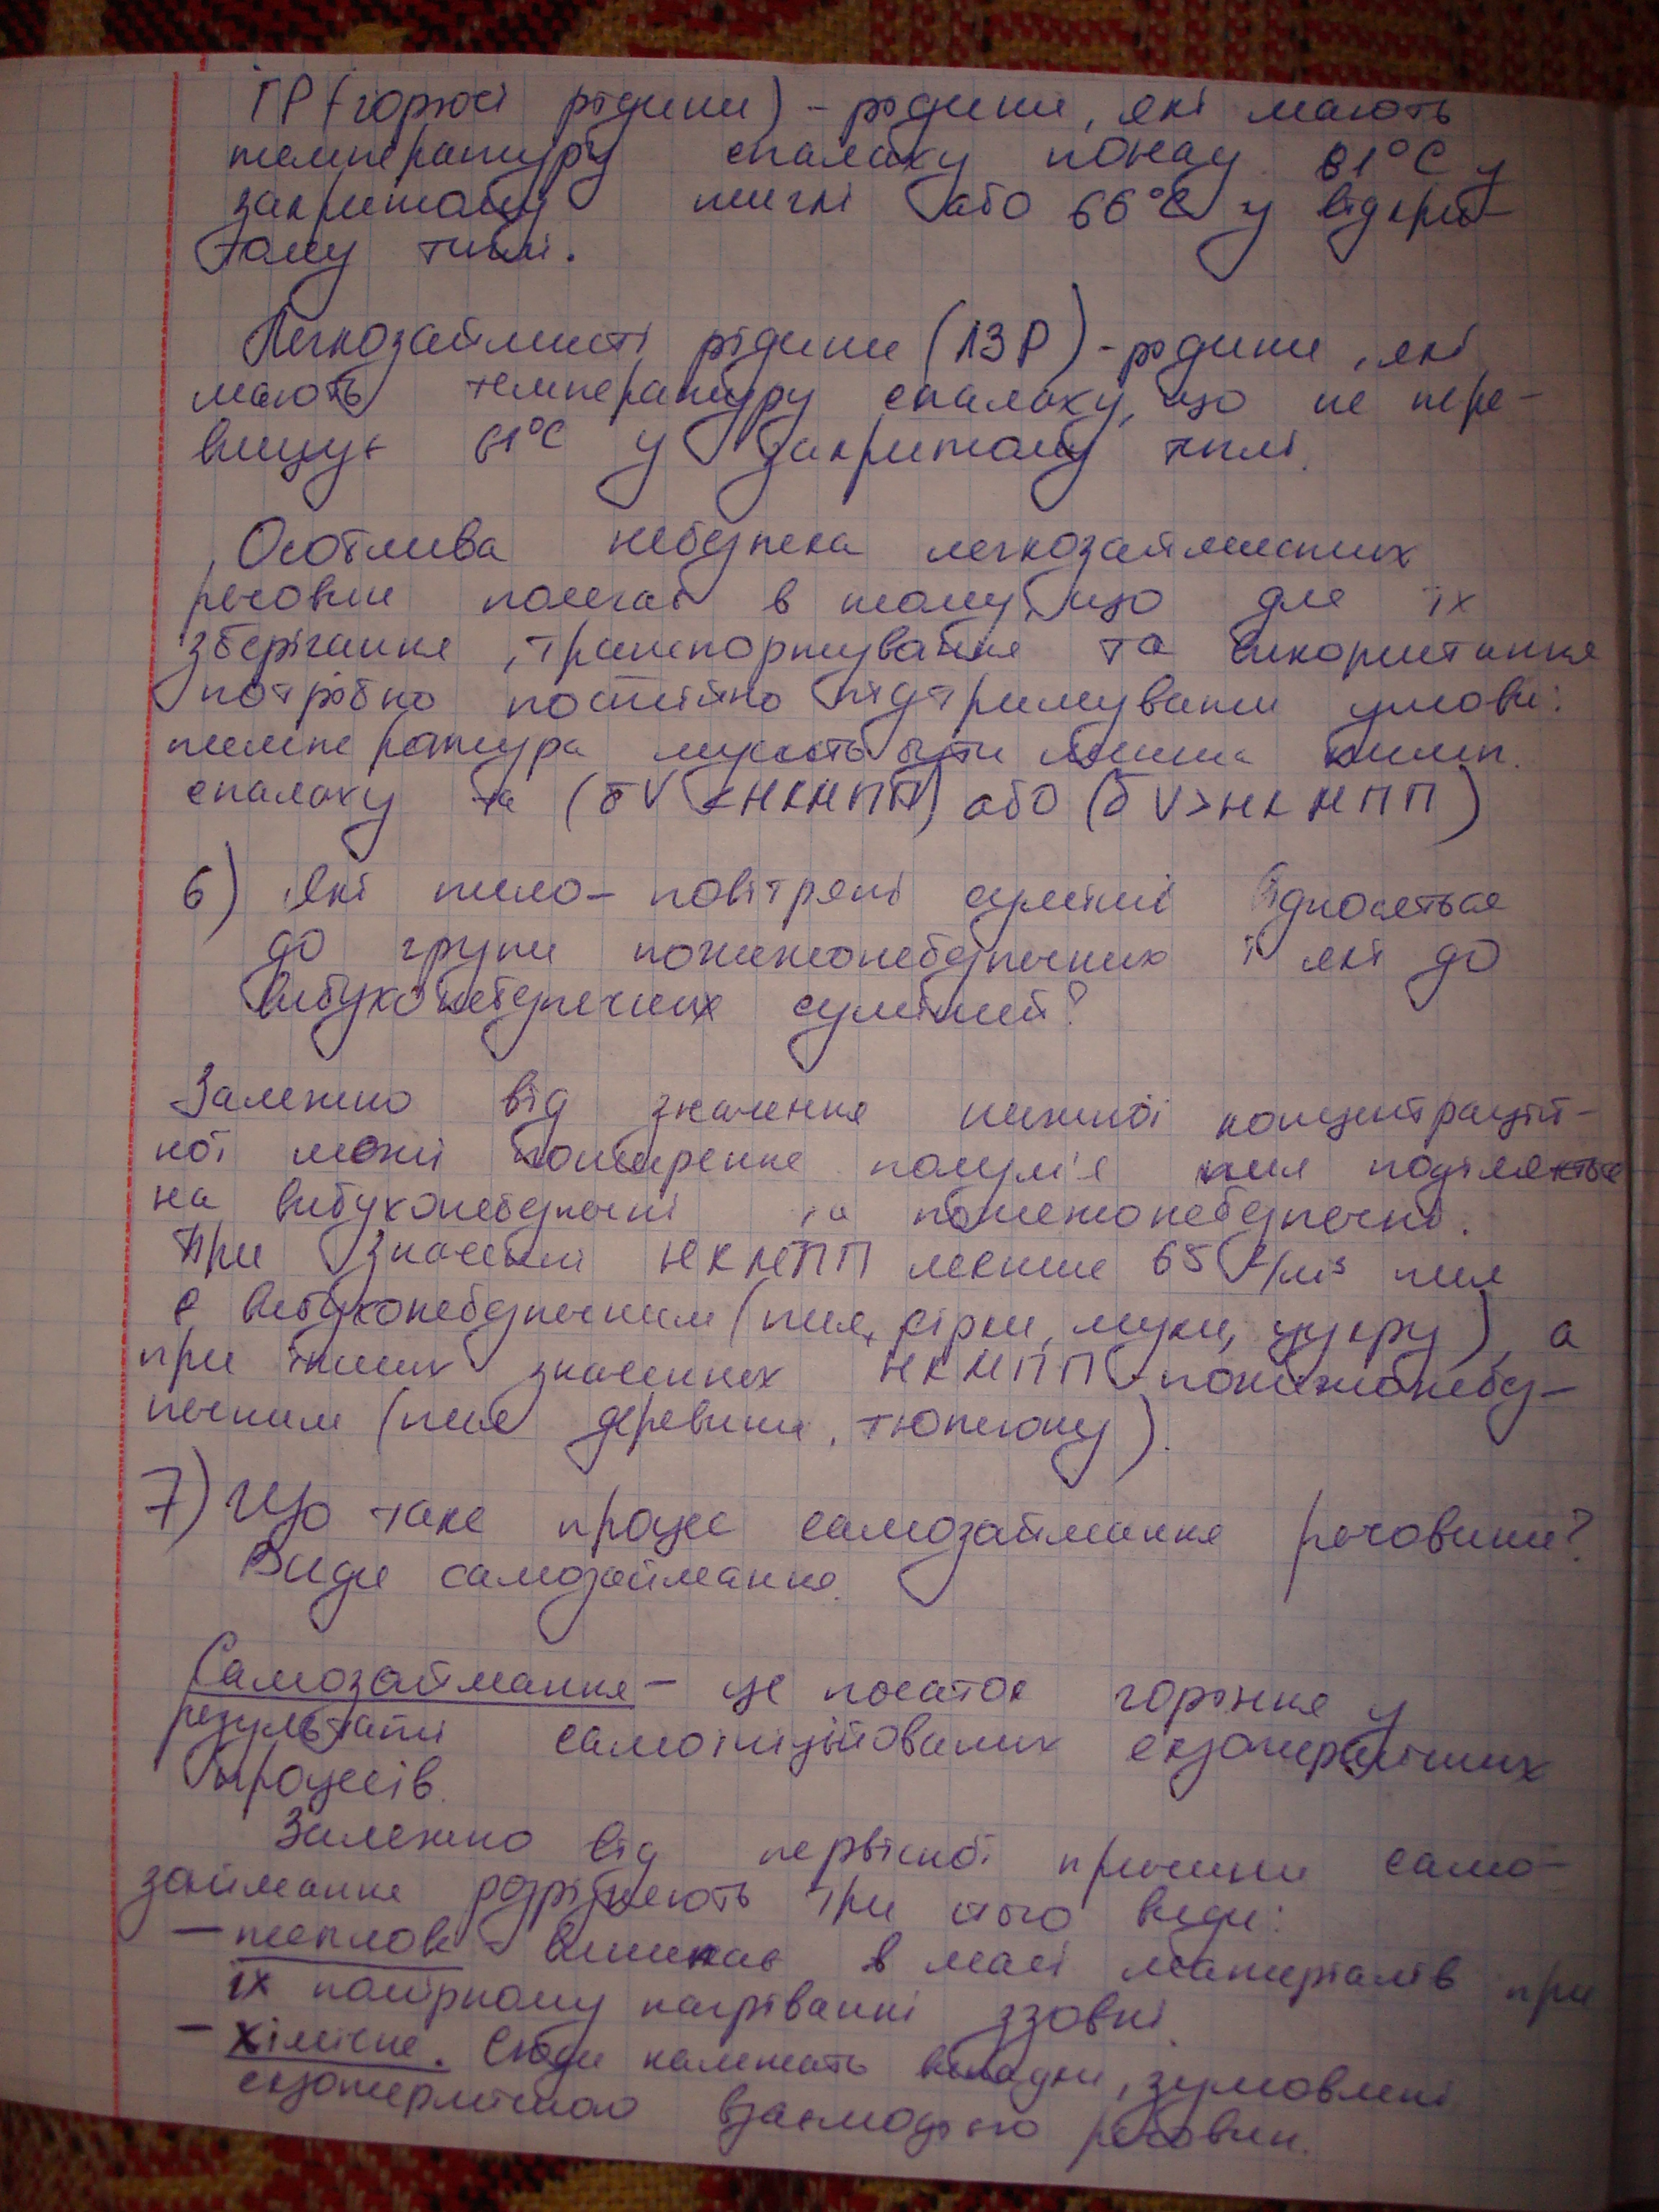 ГР (горючі рідини) – рідини, які мають
температуру спалаху понад 61°С у
закритому тиглі або 66°С у відкри-
тому тиглі.
Легкозаймисті рідини (ЛЗР) – рідини, які
мають температуру спалаху, що не пере-
вищує 61°С у закритому тиглі.
Особлива небезпека легкозаймистих
речовин полягає в тому, що для їх
зберігання, транспортування та використання
потрібно постійно підтримувати умови:
температура мусить бути менша темп.
спалаху та (δV < НКМПП) або (δV > НКМПП)
6) Які пило-повітряні суміші відносяться
до групи пожежонебезпечних і які до
вибухонебезпечних сумішей?
Залежно від значення нижньої концентрацій-
ної межі поширення полум'я пил поділяється
на вибухонебезпечні та пожежонебезпечні.
При значенні НКМПП менше 65 г/м³ пил
є вибухонебезпечним (пил, сірки, муки, цукру), а
при інших значеннях НКМПП – пожежонебез-
печним (пил деревини, тютюну).
7) Що таке процес самозаймання речовини?
Види самозаймання.
Самозаймання – це початок горіння у
результаті самоініційованих екзотермічних
процесів.
Залежно від первісної причини само-
займання розрізняють три його види:
– теплове – виникає в масі матеріалів при
їх помірному нагріванні ззовні.
– хімічне. Сюди належать випадки, зумовлені
екзотермічною взаємодією речовин.